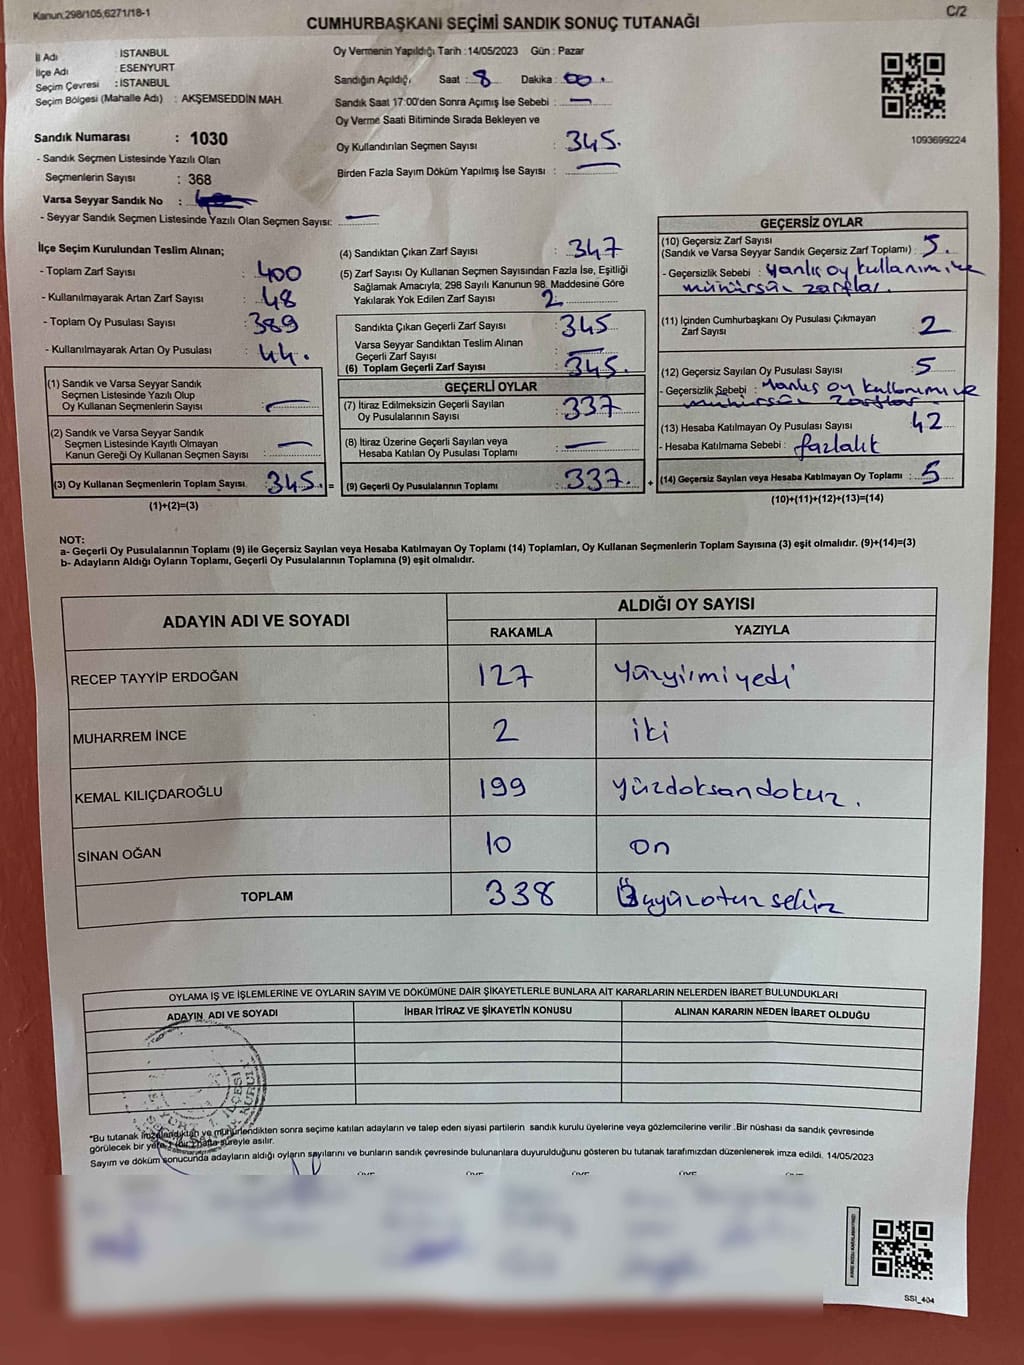 Kanun;298/105,6271/18-1
C/2
CUMHURBAŞKANI SEÇİMİ SANDIK SONUÇ TUTANAĞI
İl Adı : İSTANBUL
İlçe Adı : ESENYURT
Seçim Çevresi : İSTANBUL
Seçim Bölgesi (Mahalle Adı) : AKŞEMSEDDİN MAH.
Sandık Numarası : 1030
- Sandık Seçmen Listesinde Yazılı Olan
Seçmenlerin Sayısı : 368
Varsa Seyyar Sandık No :
- Seyyar Sandık Seçmen Listesinde Yazılı Olan Seçmen Sayısı: —
Oy Vermenin Yapıldığı Tarih :14/05/2023 Gün : Pazar
Sandığın Açıldığı, Saat : 8 Dakika : 00
Sandık Saat 17:00'den Sonra Açımış İse Sebebi : —
Oy Verme Saati Bitiminde Sırada Bekleyen ve
Oy Kullandırılan Seçmen Sayısı : 345.
Birden Fazla Sayım Döküm Yapılmış İse Sayısı : —
1093699224
İlçe Seçim Kurulundan Teslim Alınan;
- Toplam Zarf Sayısı : 400
- Kullanılmayarak Artan Zarf Sayısı : 48
- Toplam Oy Pusulası Sayısı : 389
- Kullanılmayarak Artan Oy Pusulası : 44.
(1) Sandık ve Varsa Seyyar Sandık
Seçmen Listesinde Yazılı Olup
Oy Kullanan Seçmenlerin Sayısı : —
(2) Sandık ve Varsa Seyyar Sandık
Seçmen Listesinde Kayıtlı Olmayan
Kanun Gereği Oy Kullanan Seçmen Sayısı : —
(3) Oy Kullanan Seçmenlerin Toplam Sayısı : 345. =
(1)+(2)=(3)
(4) Sandıktan Çıkan Zarf Sayısı : 347
(5) Zarf Sayısı Oy Kullanan Seçmen Sayısından Fazla İse, Eşitliği
Sağlamak Amacıyla; 298 Sayılı Kanunun 98. Maddesine Göre
Yakılarak Yok Edilen Zarf Sayısı : 2
Sandıkta Çıkan Geçerli Zarf Sayısı : 345
Varsa Seyyar Sandıktan Teslim Alınan
Geçerli Zarf Sayısı : —
(6) Toplam Geçerli Zarf Sayısı : 345.
GEÇERLİ OYLAR
(7) İtiraz Edilmeksizin Geçerli Sayılan
Oy Pusulalarının Sayısı : 337
(8) İtiraz Üzerine Geçerli Sayılan veya
Hesaba Katılan Oy Pusulası Toplamı : —
(9) Geçerli Oy Pusulalarının Toplamı : 337. +
GEÇERSİZ OYLAR
(10) Geçersiz Zarf Sayısı
(Sandık ve Varsa Seyyar Sandık Geçersiz Zarf Toplamı) : 5.
- Geçersizlik Sebebi : Yanlış oy kullanımı ve
mühürsüz zarflar.
(11) İçinden Cumhurbaşkanı Oy Pusulası Çıkmayan
Zarf Sayısı : 2
(12) Geçersiz Sayılan Oy Pusulası Sayısı : 5
- Geçersizlik Sebebi : Yanlış oy kullanımı ve
mühürsüz zarflar
(13) Hesaba Katılmayan Oy Pusulası Sayısı : 42
- Hesaba Katılmama Sebebi : fazlalık
(14) Geçersiz Sayılan veya Hesaba Katılmayan Oy Toplamı : 5
(10)+(11)+(12)+(13)=(14)
NOT:
a- Geçerli Oy Pusulalarının Toplamı (9) ile Geçersiz Sayılan veya Hesaba Katılmayan Oy Toplamı (14) Toplamları, Oy Kullanan Seçmenlerin Toplam Sayısına (3) eşit olmalıdır. (9)+(14)=(3)
b- Adayların Aldığı Oyların Toplamı, Geçerli Oy Pusulalarının Toplamına (9) eşit olmalıdır.
ADAYIN ADI VE SOYADI
ALDIĞI OY SAYISI
RAKAMLA YAZIYLA
RECEP TAYYİP ERDOĞAN 127 Yüzyirmiyedi
MUHARREM İNCE 2 iki
KEMAL KILIÇDAROĞLU 199 Yüzdoksandokuz.
SİNAN OĞAN 10 on
TOPLAM 338 Üçyüzotuzsekiz
OYLAMA İŞ VE İŞLEMLERİNE VE OYLARIN SAYIM VE DÖKÜMÜNE DAİR ŞİKAYETLERLE BUNLARA AİT KARARLARIN NELERDEN İBARET BULUNDUKLARI
ADAYIN ADI VE SOYADI İHBAR İTİRAZ VE ŞİKAYETİN KONUSU ALINAN KARARIN NEDEN İBARET OLDUĞU
*Bu tutanak imzalandıktan ve mühürlendikten sonra seçime katılan adayların ve talep eden siyasi partilerin sandık kurulu üyelerine veya gözlemcilerine verilir .Bir nüshası da sandık çevresinde
görülecek bir yere 1 (bir) hafta süreyle asılır.
Sayım ve döküm sonucunda adayların aldığı oyların sayılarını ve bunların sandık çevresinde bulunanlara duyurulduğunu gösteren bu tutanak tarafımızdan düzenlenerek imza edildi. 14/05/2023
SSI_404